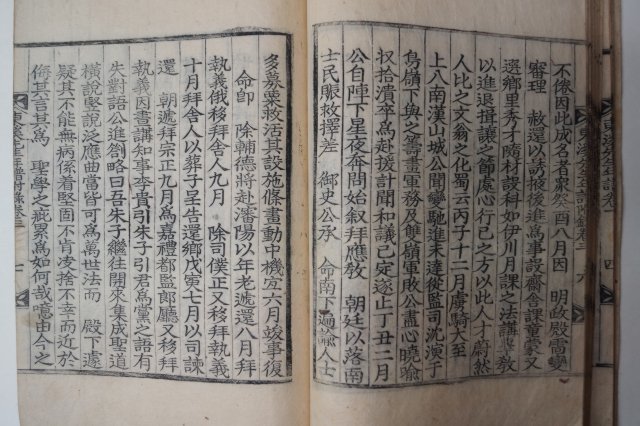 不倦因此成名者衆癸酉八月因 明政殿雷變
審理 赦還以誘掖後進爲事設齋舍課童蒙又
選鄕里秀才隋材設科如伊川月課之法講敎
以進退揖讓之節處心行己之方以此人才蔚然
人比之文翁之化蜀云丙子十二月虜騎大至
上入南漢山城公聞變馳進未達從監司沈演于
鳥嶺下與之籌畫軍務及雙嶺軍敗公盡心曉喩
收拾潰卒爲赴援計聞和議已定遂止丁丑二月
公自陣下星夜奔問始敍拜應敎 朝廷以落南
士民賑救擇差 御史公承 命南下廵諭人士
多募粟救活其設施條畫動中機宜六月竣事復
命卽 除輔德將赴瀋陽以年老遞還八月拜
執義俄移拜舍人九月 除司僕正又移拜執義
十月拜舍人以葬子呈告還鄕戊寅七月以司諫
還 朝遞拜宗正九月爲嘉禮都監郎廳又移拜
執義因晝講知事李貴引朱子引君爲黨之語有
失對語公進劄略曰吾朱子繼往開來集成聖道
橫說竪說泛應曲當皆可爲萬世法而 殿下遽
疑其不能無病係着堅固不肯凌捨不幸而近於
侮其言其爲 聖學之疵累爲如何哉噫由今之